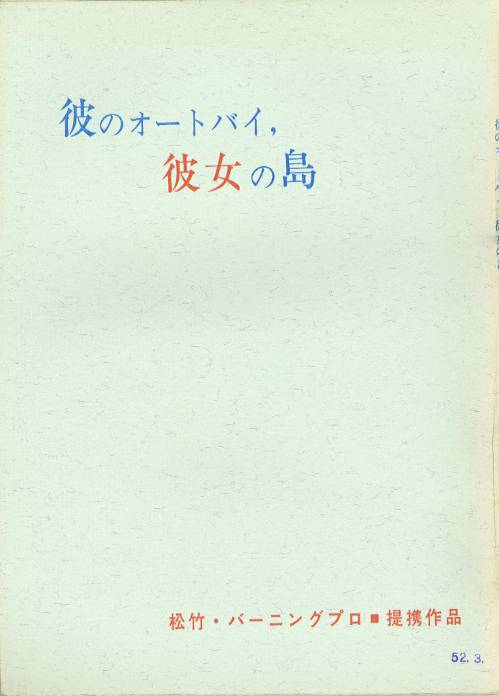 彼のオートバイ,
彼女の島
松竹・バーニングプロ■提携作品
52. 3.